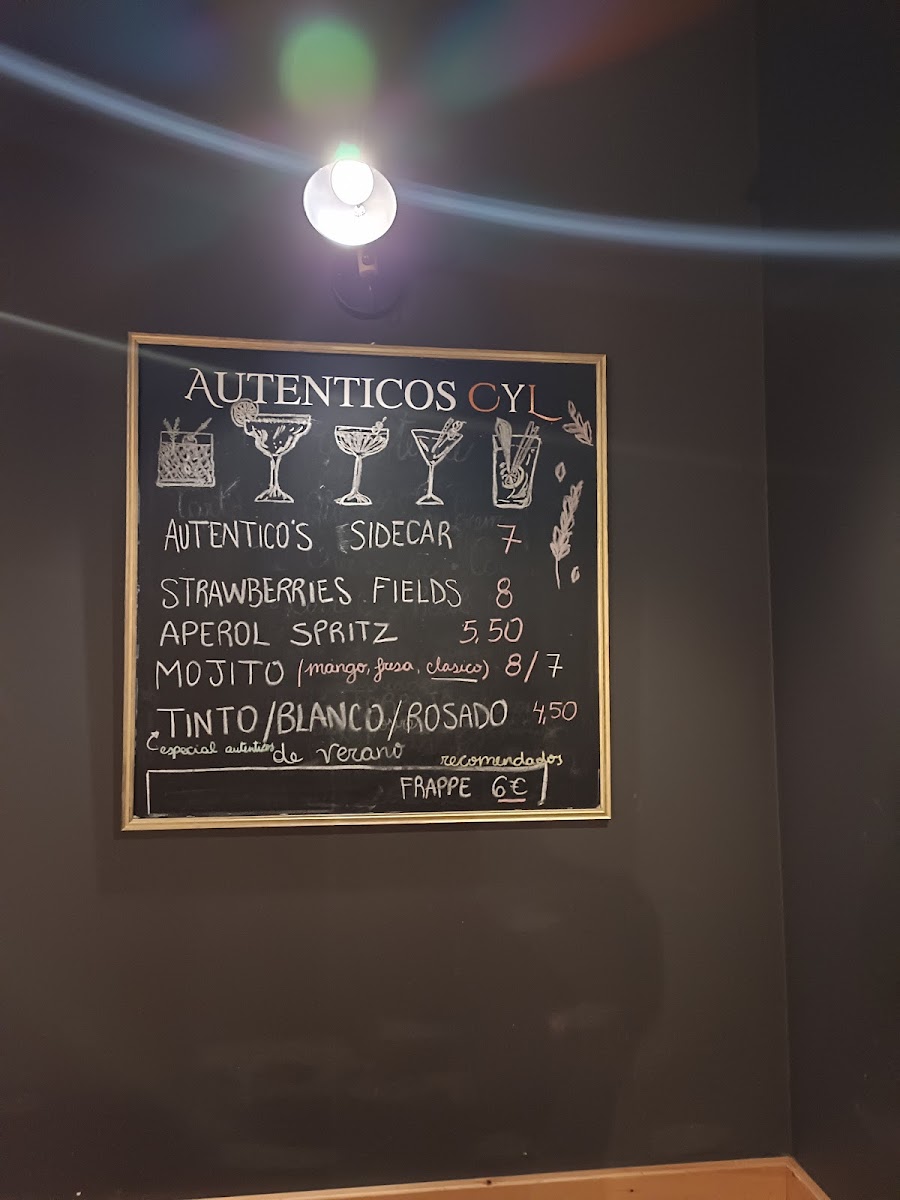 AUTENTICOS CYL
AUTENTICO'S SIDECAR 7
STRAWBERRIES FIELDS 8
APEROL SPRITZ 5,50
MOJITO (mango, fresa, clasico) 8/7
TINTO/BLANCO/ROSADO 4,50
especial autenticos de verano recomendados
FRAPPE 6€